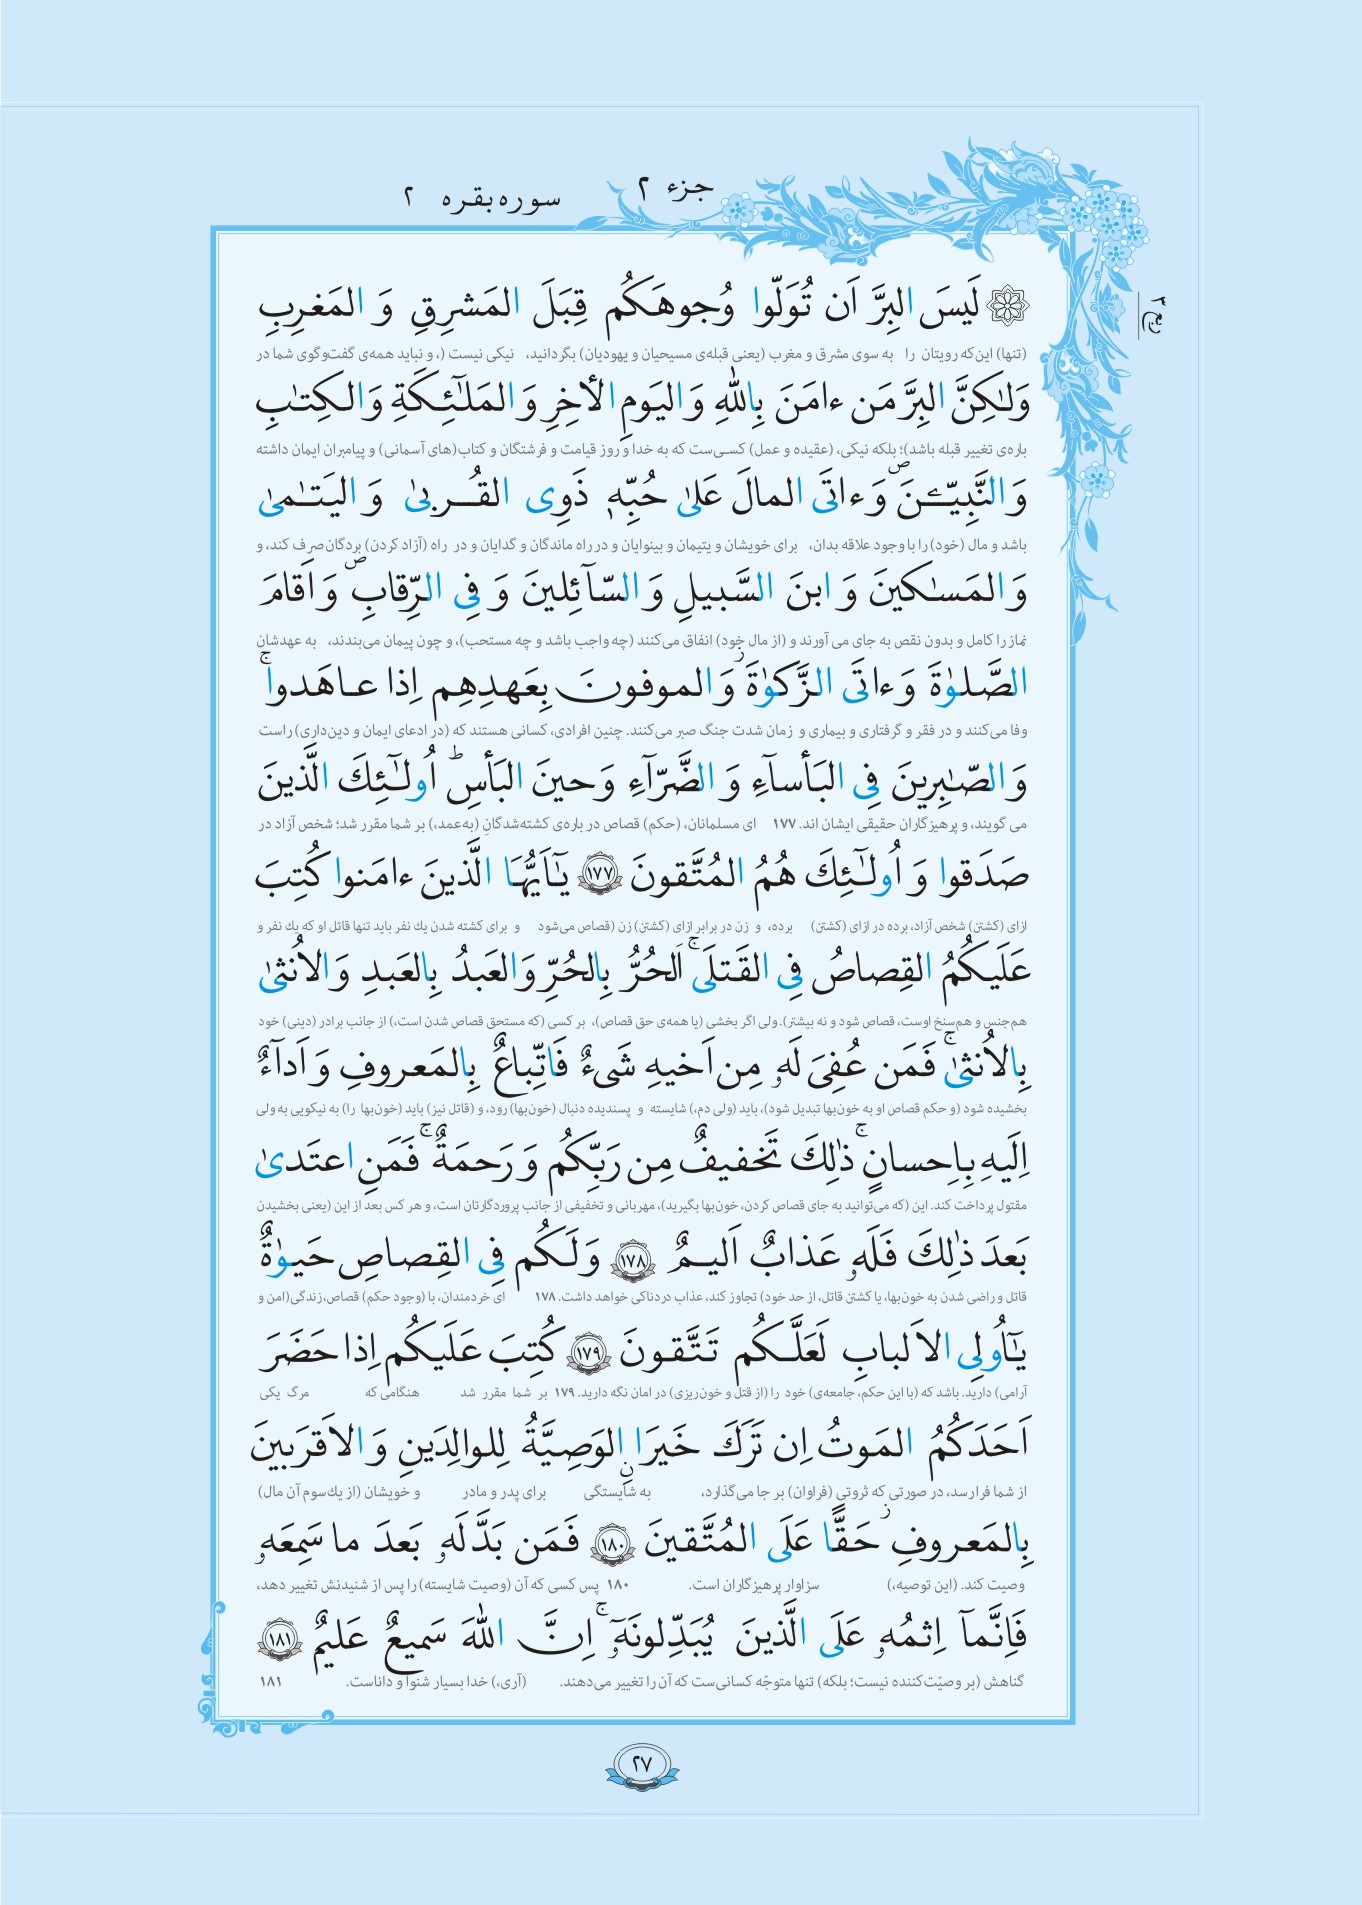 جزء ۲
سوره بقره ۲
ربع ۳
لَیسَ البِرَّ اَن تُوَلّوا وُجوهَکُم قِبَلَ المَشرِقِ وَ المَغرِبِ
(تنها) این‌که رویتان را به سوی مشرق و مغرب (یعنی قبله‌ی مسیحیان و یهودیان) بگردانید، نیکی نیست (، و نباید همه‌ی گفت‌وگوی شما در
وَلٰکِنَّ البِرَّ مَن ءامَنَ بِاللّٰهِ وَ الیَومِ الأخِرِ وَ المَلٰٓئِکَةِ وَ الکِتٰبِ
باره‌ی تغییر قبله باشد)؛ بلکه نیکی، (عقیده و عمل) کسی‌ست که به خدا و روز قیامت و فرشتگان و کتاب(های آسمانی) و پیامبران ایمان داشته
وَ النَّبِیّــۧنَ ۖ وَ ءاتَی المالَ عَلیٰ حُبِّهٖ ذَوِی القُربیٰ وَ الیَتٰمیٰ
باشد و مال (خود) را با وجود علاقه بدان، برای خویشان و یتیمان و بینوایان و در راه ماندگان و گدایان و در راه (آزاد کردن) بردگان صرف کند، و
وَ المَسٰکینَ وَ ابنَ السَّبیلِ وَ السّآئِلینَ وَ فِی الرِّقابِ ۖ وَ اَقامَ
نماز را کامل و بدون نقص به جای می آورند و (از مال خود) انفاق می‌کنند (چه واجب باشد و چه مستحب)، و چون پیمان می‌بندند، به عهدشان
الصَّلوٰةَ وَ ءاتَی الزَّکوٰةَ ز وَ الموفونَ بِعَهدِهِم اِذا عاهَدوا ۚ
وفا می‌کنند و در فقر و گرفتاری و بیماری و زمان شدت جنگ صبر می‌کنند. چنین افرادی، کسانی هستند که (در ادعای ایمان و دین‌داری) راست
وَ الصّٰبِرینَ فِی البَأسآءِ وَ الضَّرّآءِ وَ حینَ البَأسِ ؕ اُولٰٓئِكَ الَّذینَ
می گویند، و پرهیزگاران حقیقی ایشان اند. ۱۷۷ ای مسلمانان، (حکم) قصاص در باره‌ی کشته‌شدگان (به‌عمد،) بر شما مقرر شد؛ شخص آزاد در
صَدَقوا وَ اُولٰٓئِكَ هُمُ المُتَّقونَ ۱۷۷ یٰٓاَیُّهَا الَّذینَ ءامَنوا کُتِبَ
ازای (کشتن) شخص آزاد، برده در ازای (کشتن) برده، و زن در برابر ازای (کشتن) زن (قصاص می‌شود و برای کشته شدن یك نفر باید تنها قاتل او که یك نفر و
عَلَیکُمُ القِصاصُ فِی القَتلَی ۚ اَلحُرُّ بِالحُرِّ وَ العَبدُ بِالعَبدِ وَ الاُنثیٰ
هم‌جنس و هم‌سنخ اوست، قصاص شود و نه بیشتر). ولی اگر بخشی (یا همه‌ی حق قصاص)، بر کسی (که مستحق قصاص شدن است،) از جانب برادر (دینی) خود
بِالاُنثیٰ ۚ فَمَن عُفِیَ لَهٗ مِن اَخیهِ شَیءٌ فَاتِّباعٌ بِالمَعروفِ وَ اَدآءٌ
بخشیده شود (و حکم قصاص او به خون‌بها تبدیل شود)، باید (ولی دم،) شایسته و پسندیده دنبال (خون‌بها) رود، و (قاتل نیز) باید (خون‌بها را) به نیکویی به ولی
اِلَیهِ بِاِحسانٍ ۚ ذٰلِكَ تَخفیفٌ مِن رَبِّکُم وَ رَحمَةٌ ۚ فَمَنِ اعتَدیٰ
مقتول پرداخت کند. این (که می‌توانید به جای قصاص کردن، خون‌بها بگیرید)، مهربانی و تخفیفی از جانب پروردگارتان است، و هر کس بعد از این (یعنی بخشیدن
بَعدَ ذٰلِكَ فَلَهٗ عَذابٌ اَلیمٌ ۱۷۸ وَ لَکُم فِی القِصاصِ حَیوٰةٌ
قاتل و راضی شدن به خون‌بها، یا کشتن قاتل، از حد خود) تجاوز کند، عذاب دردناکی خواهد داشت. ۱۷۸ ای خردمندان، با (وجود حکم) قصاص، زندگی(امن و
یٰٓاُولِی الاَلبابِ لَعَلَّکُم تَتَّقونَ ۱۷۹ کُتِبَ عَلَیکُم اِذا حَضَرَ
آرامی) دارید. باشد که (با این حکم، جامعه‌ی) خود را (از قتل و خون‌ریزی) در امان نگه دارید. ۱۷۹ بر شما مقرر شد هنگامی که مرگ یکی
اَحَدَکُمُ المَوتُ اِن تَرَكَ خَیرَا نِ الوَصِیَّةُ لِلوالِدَینِ وَ الاَقرَبینَ
از شما فرا رسد، در صورتی که ثروتی (فراوان) بر جا می‌گذارد، به شایستگی برای پدر و مادر و خویشان (از یك‌سوم آن مال)
بِالمَعروفِ ز حَقًّا عَلَی المُتَّقینَ ۱۸۰ فَمَن بَدَّلَهٗ بَعدَ ما سَمِعَهٗ
وصیت کند. (این توصیه،) سزاوار پرهیزگاران است. ۱۸۰ پس کسی که آن (وصیت شایسته) را پس از شنیدنش تغییر دهد،
فَاِنَّمآ اِثمُهٗ عَلَی الَّذینَ یُبَدِّلونَهٗٓ ۚ اِنَّ اللّٰهَ سَمیعٌ عَلیمٌ ۱۸۱
گناهش (بر وصیّت‌کننده نیست؛ بلکه) تنها متوجّه کسانی‌ست که آن را تغییر می‌دهند. (آری،) خدا بسیار شنوا و داناست. ۱۸۱
۲۷